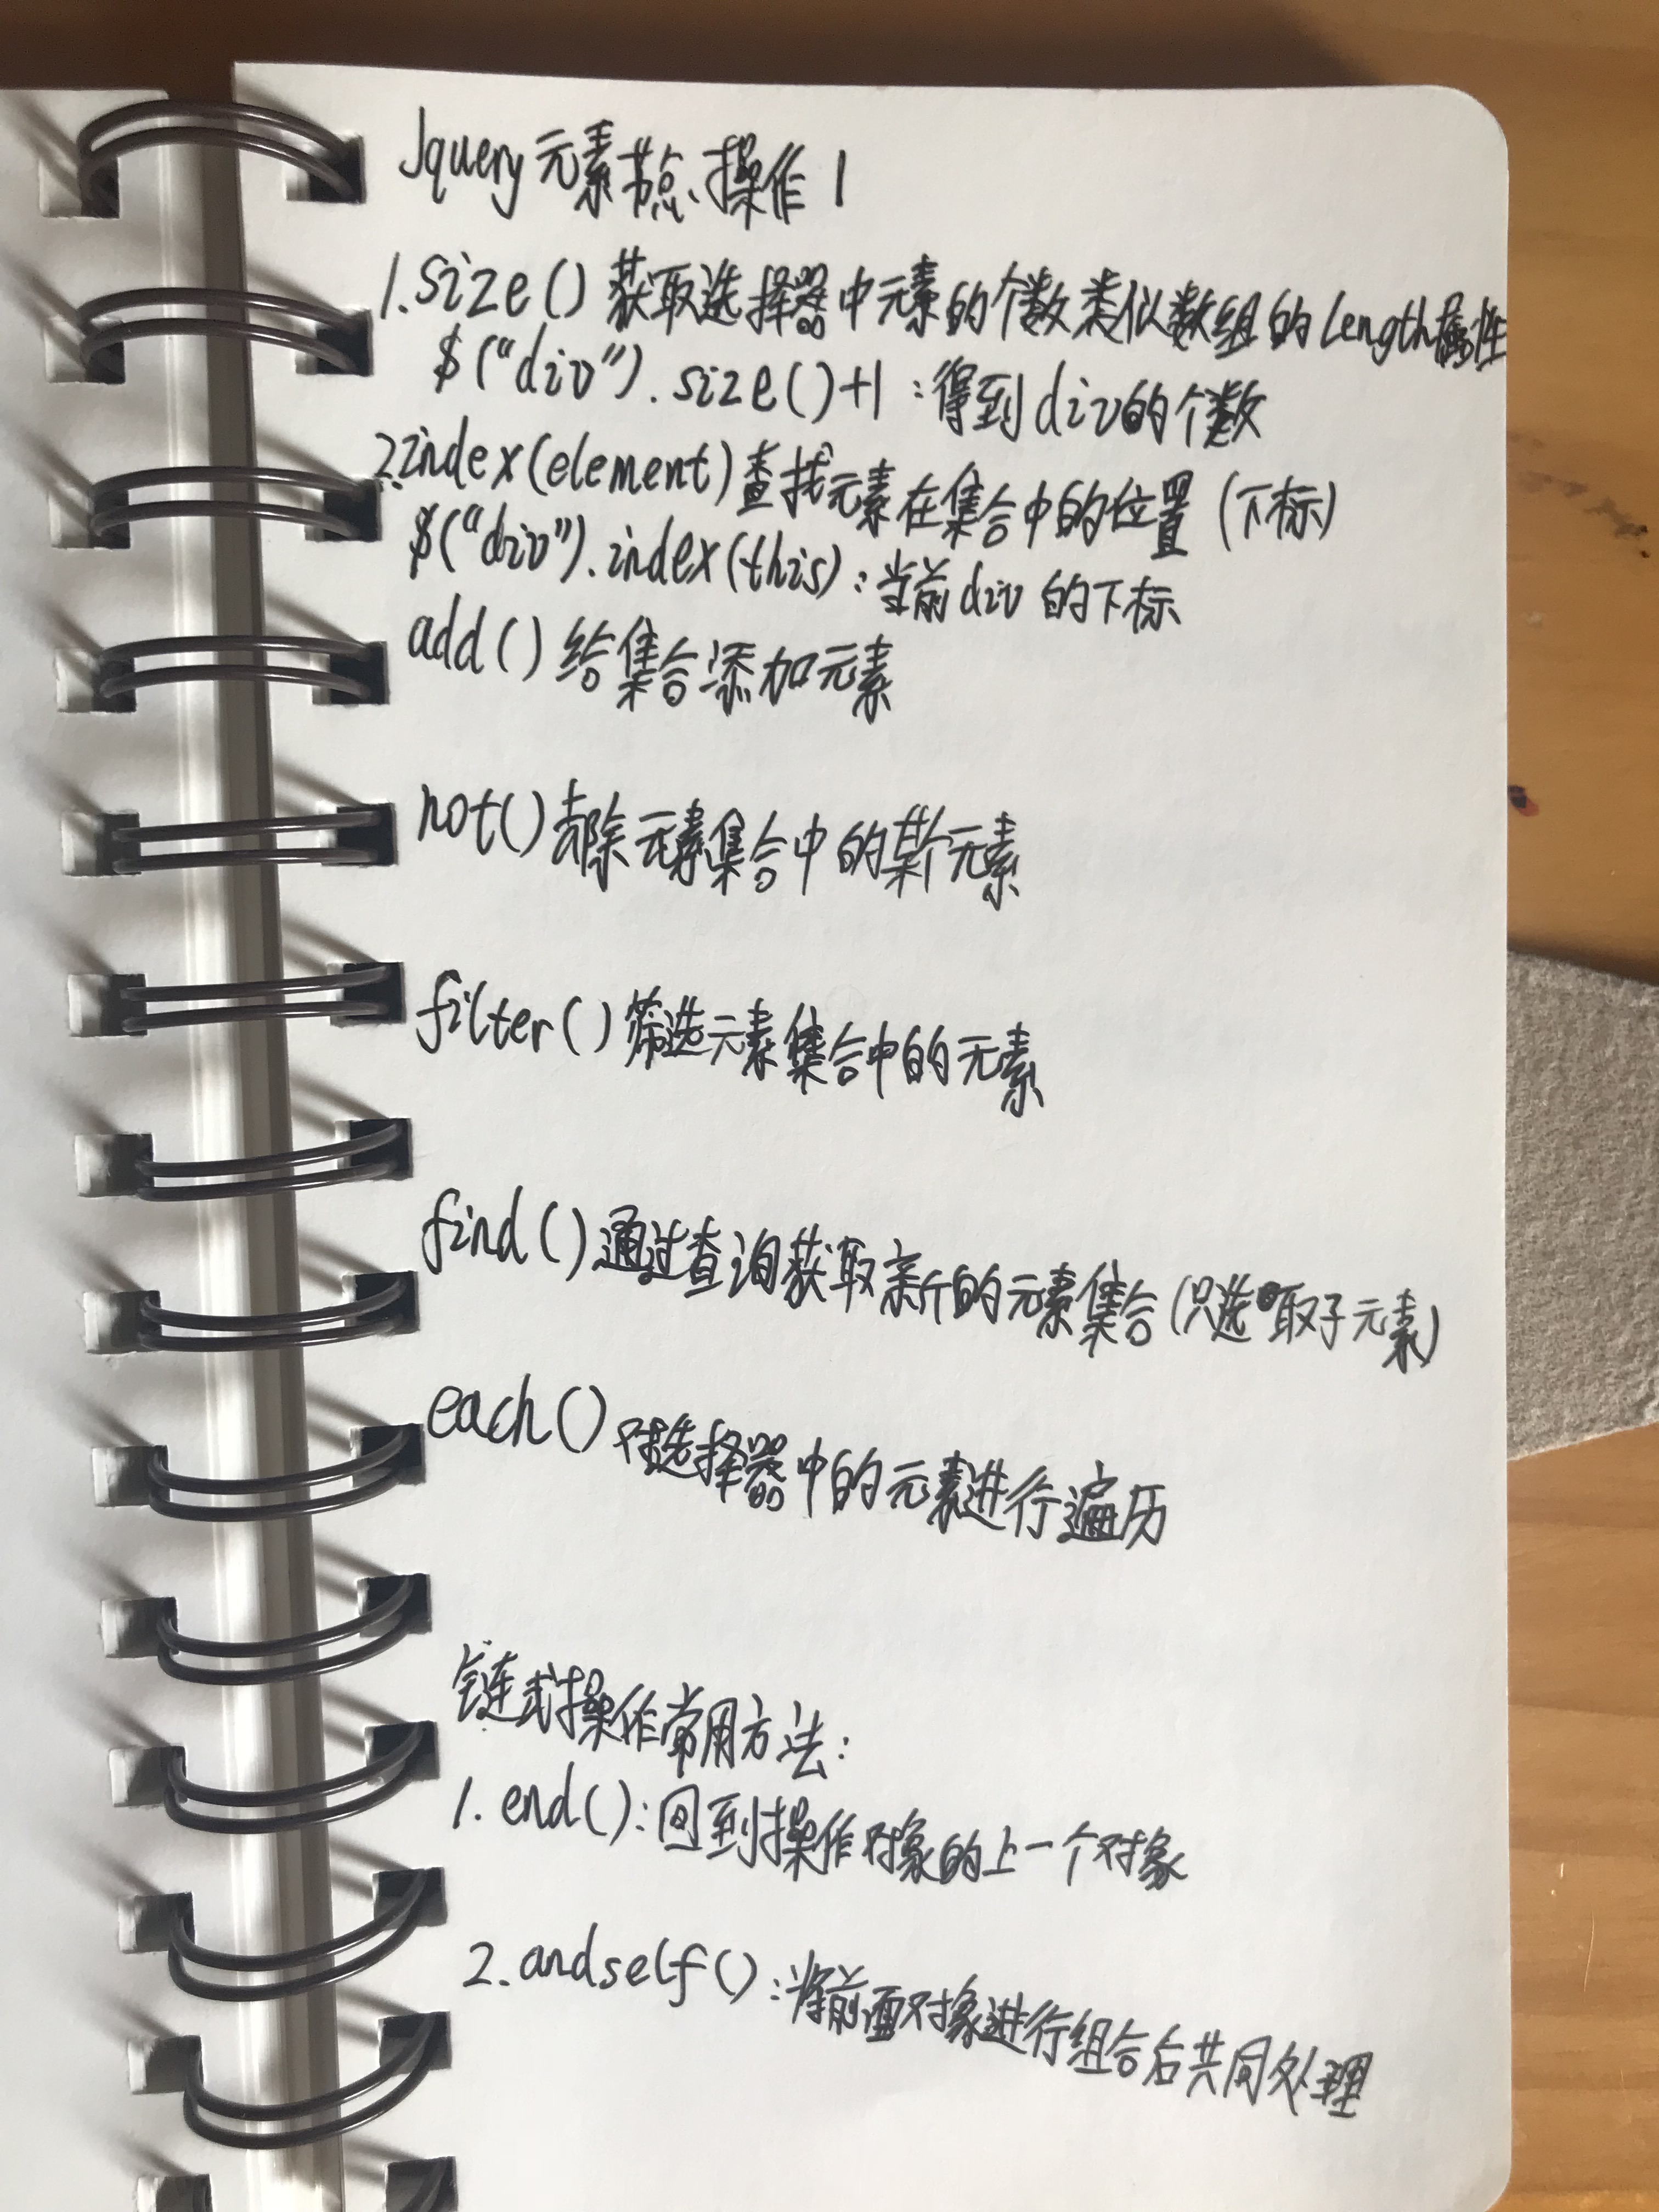 Jquery元素节点操作1
1.size()获取选择器中元素的个数类似数组的Length属性
$(“div”).size()+1:得到div的个数
2.index(element)查找元素在集合中的位置(下标)
$(“div”).index(this):当前div的下标
add()给集合添加元素
not()去除元素集合中的某个元素
filter()筛选元素集合中的元素
find()通过查询获取新的元素集合(只选取子元素)
each()对选择器中的元素进行遍历
链式操作常用方法:
1.end():回到操作对象的上一个对象
2.andself():将前面对象进行组合后共同处理